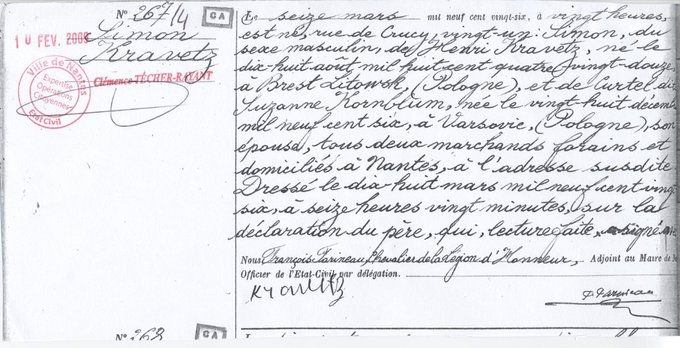 N° 267/4
GA
10 FEV. 2009
Simon
Kravetz
Clémence TÉCHER-RAYANT
Ville de Nantes
Expertise
Opérations
Citoyennes
Etat Civil
Le seize mars mil neuf cent vingt-six, à vingt heures,
est né, rue de Crucy, vingt-un: Simon, du
sexe masculin, de Henri Kravetz, né le
dix-huit août mil huit cent quatre vingt-douze,
à Brest Litowsk, (Pologne), et de Curtel
Suzanne Kornblum, née le vingt-huit décem
mil neuf cent six, à Varsovie, (Pologne), son
épouse, tous deux marchands forains et
domiciliés à Nantes, à l'adresse susdite.
Dressé le dix-huit mars mil neuf cent vingt
six, à seize heures vingt minutes, sur la
déclaration du père, qui, lecture faite, a signé
Nous François Farineau, Chevalier de la Légion d'Honneur, Adjoint au Maire de
Officier de l'Etat-Civil par délégation.
Kravetz
F Farineau
N° 268
GA